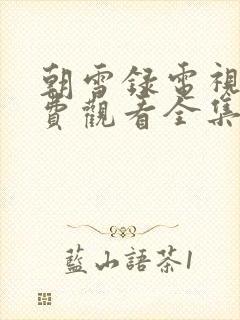 朝雪録電視
費觀看全集
藍山語茶1